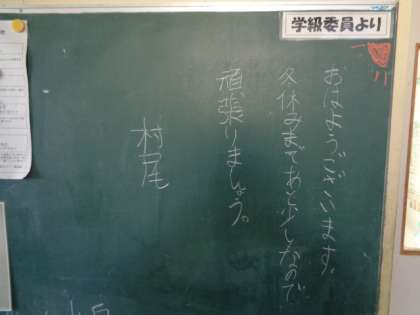 学級委員より
おはようございます。
冬休みまであと少しなので
頑張りましょう。
村尾